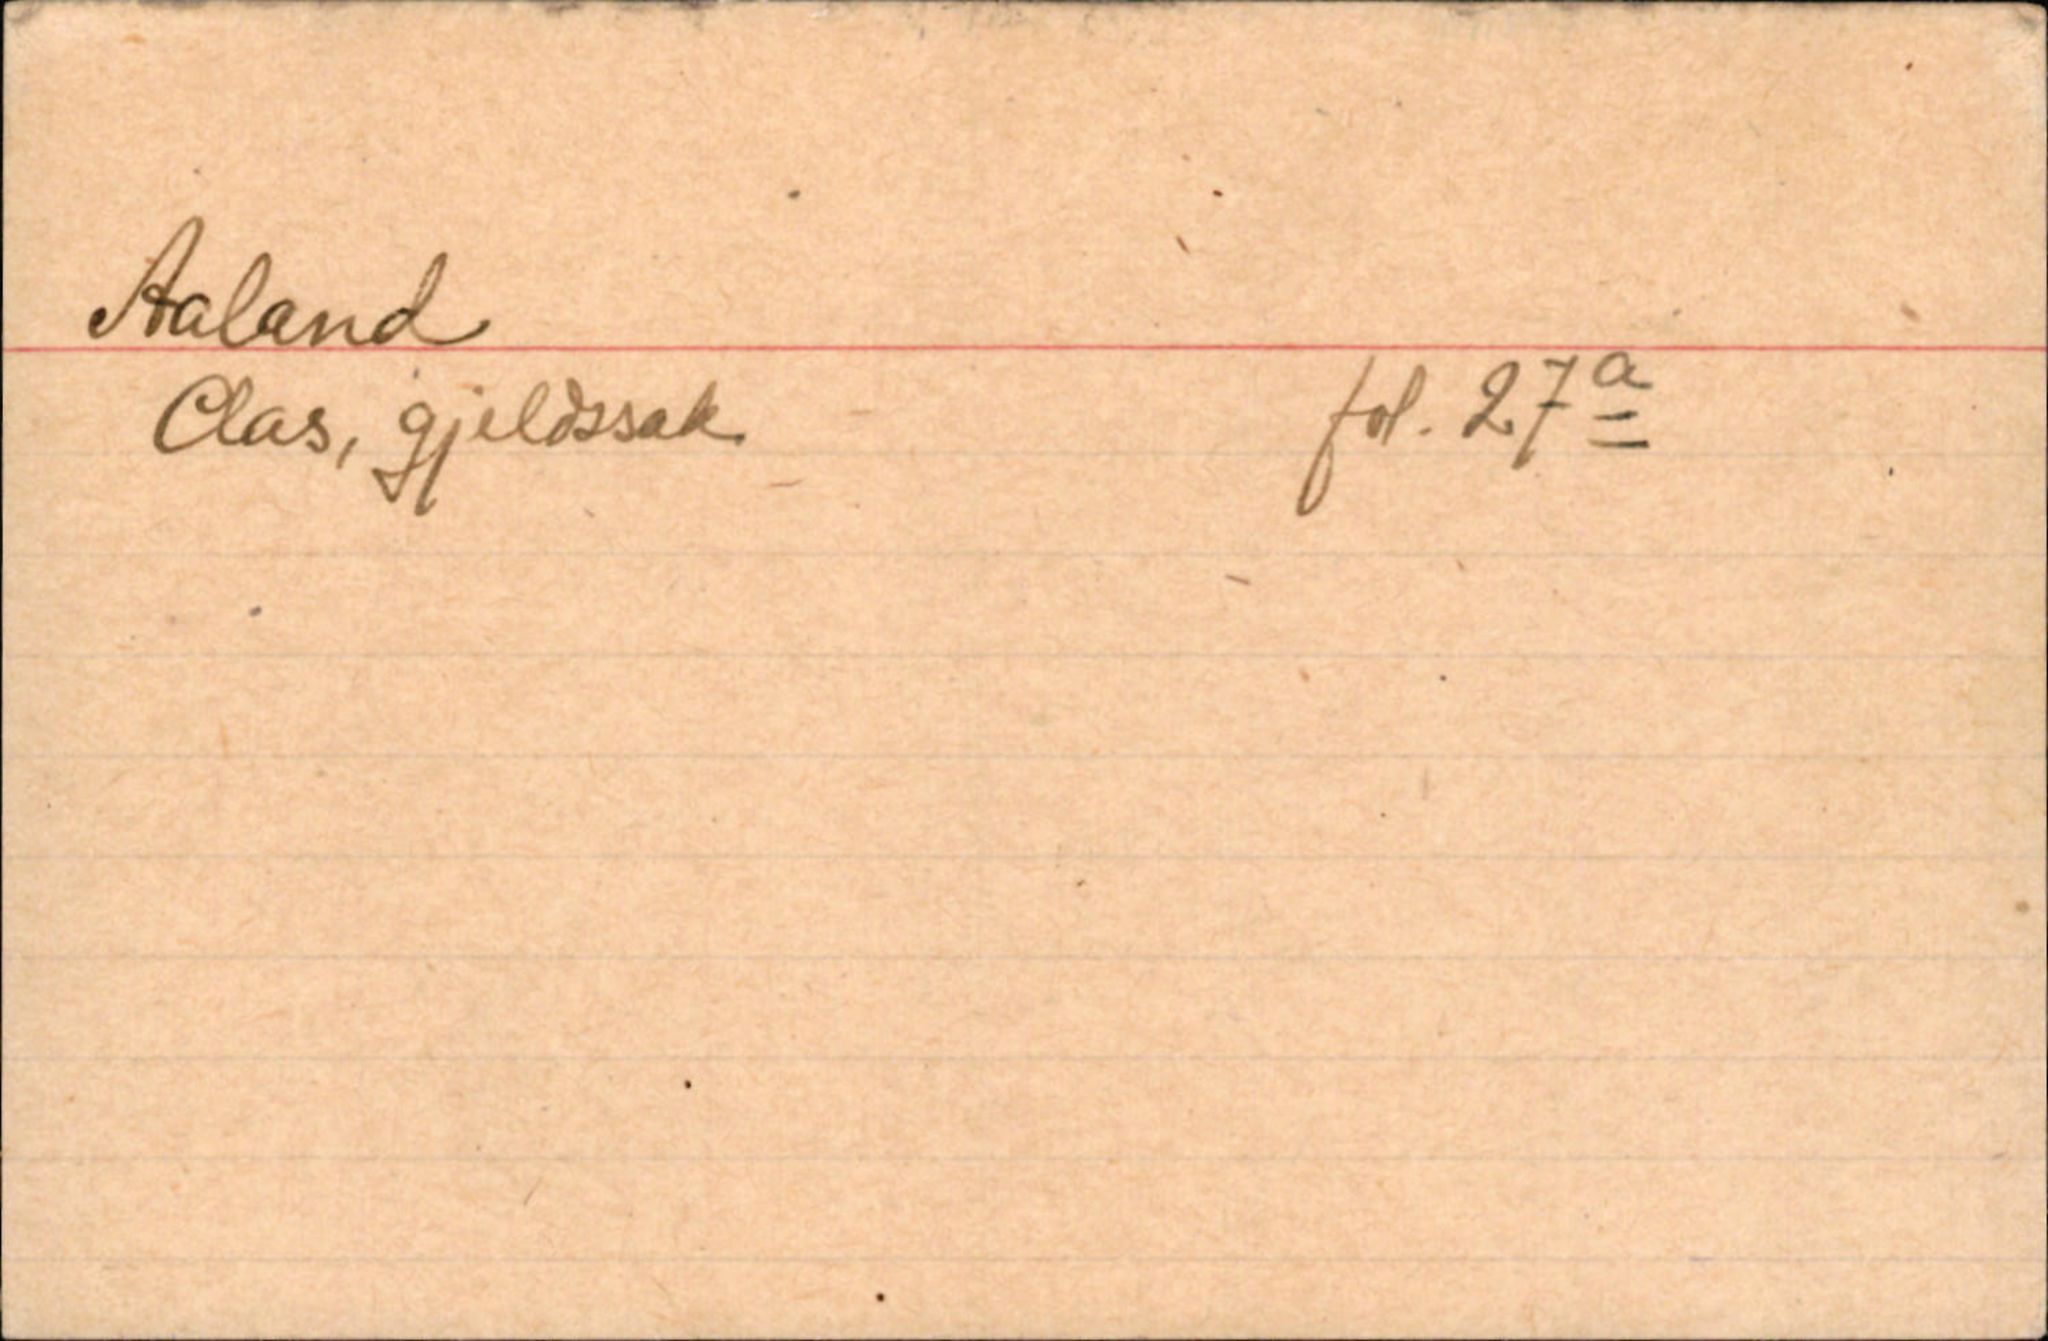 Aaland
Clas, gjeldssak fol. 27a